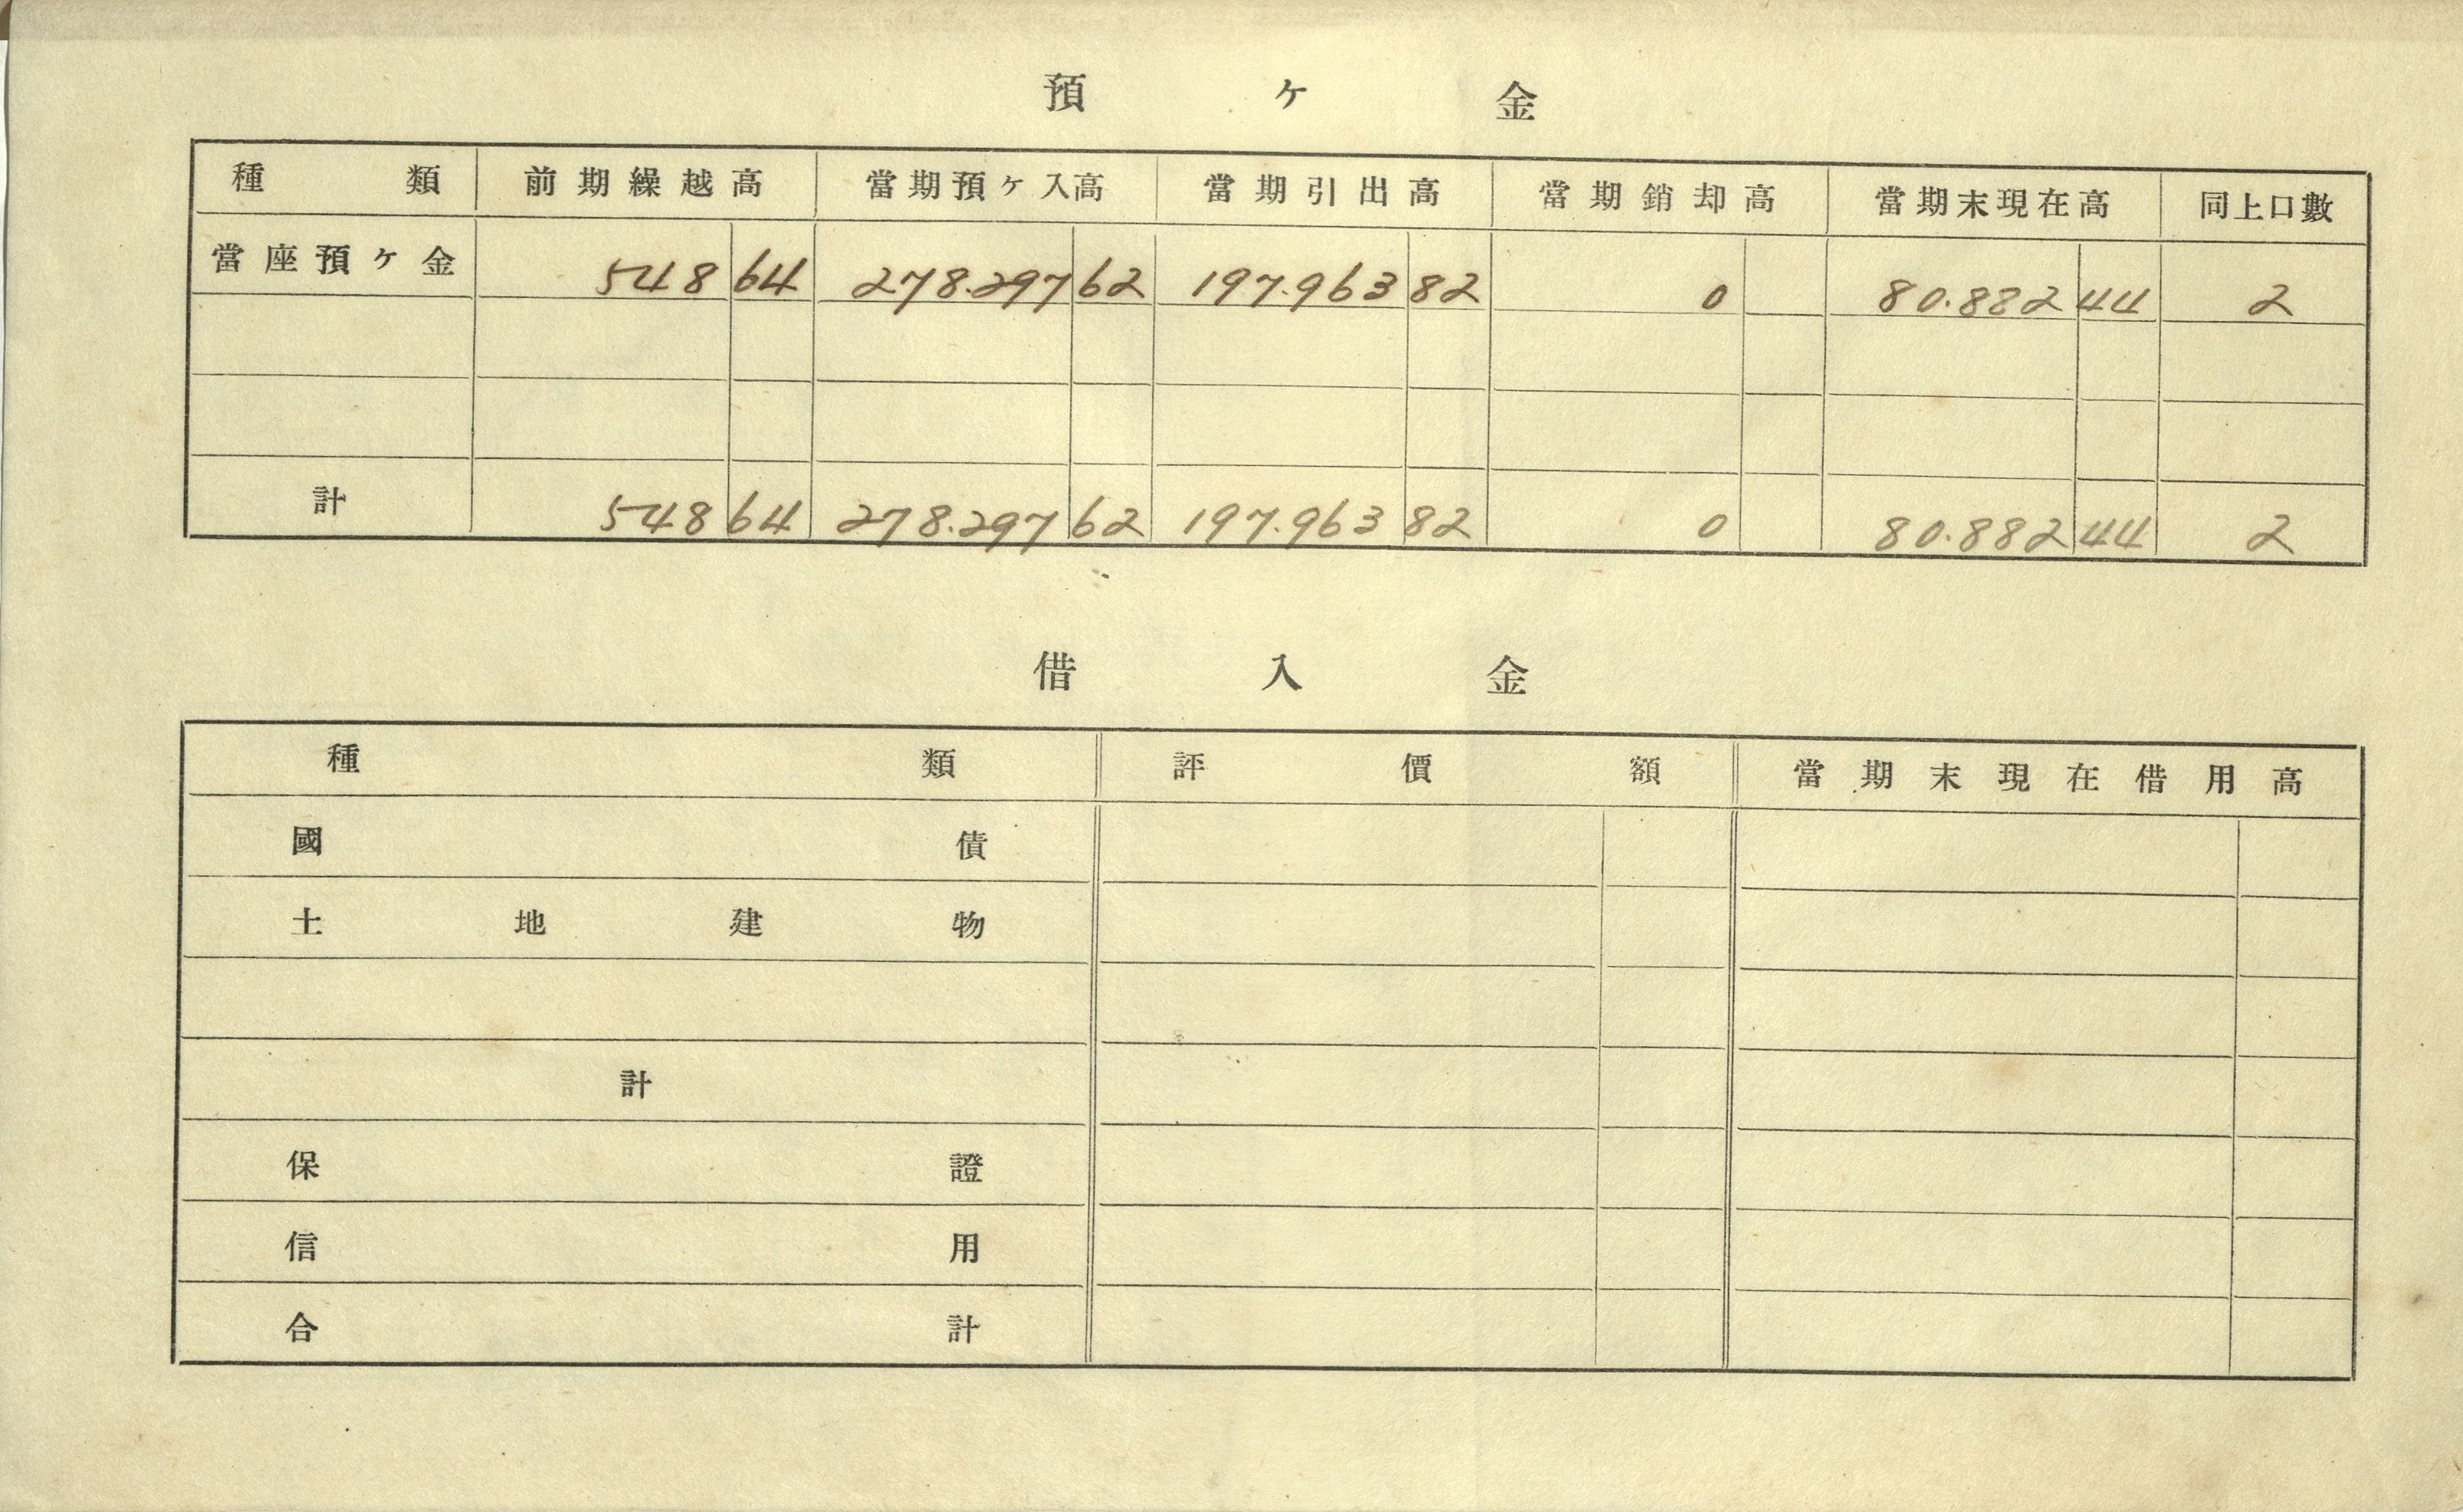 預ケ金
種類 前期繰越高 當期預ケ入高 當期引出高 當期銷却高 當期末現在高 同上口數
當座預ケ金 548 64 278.297 62 197.963 82 0 80.882 44 2
計 548 64 278.297 62 197.963 82 0 80.882 44 2
借入金
種類 評價額 當期末現在借用高
國債
土地建物
計
保證
信用
合計